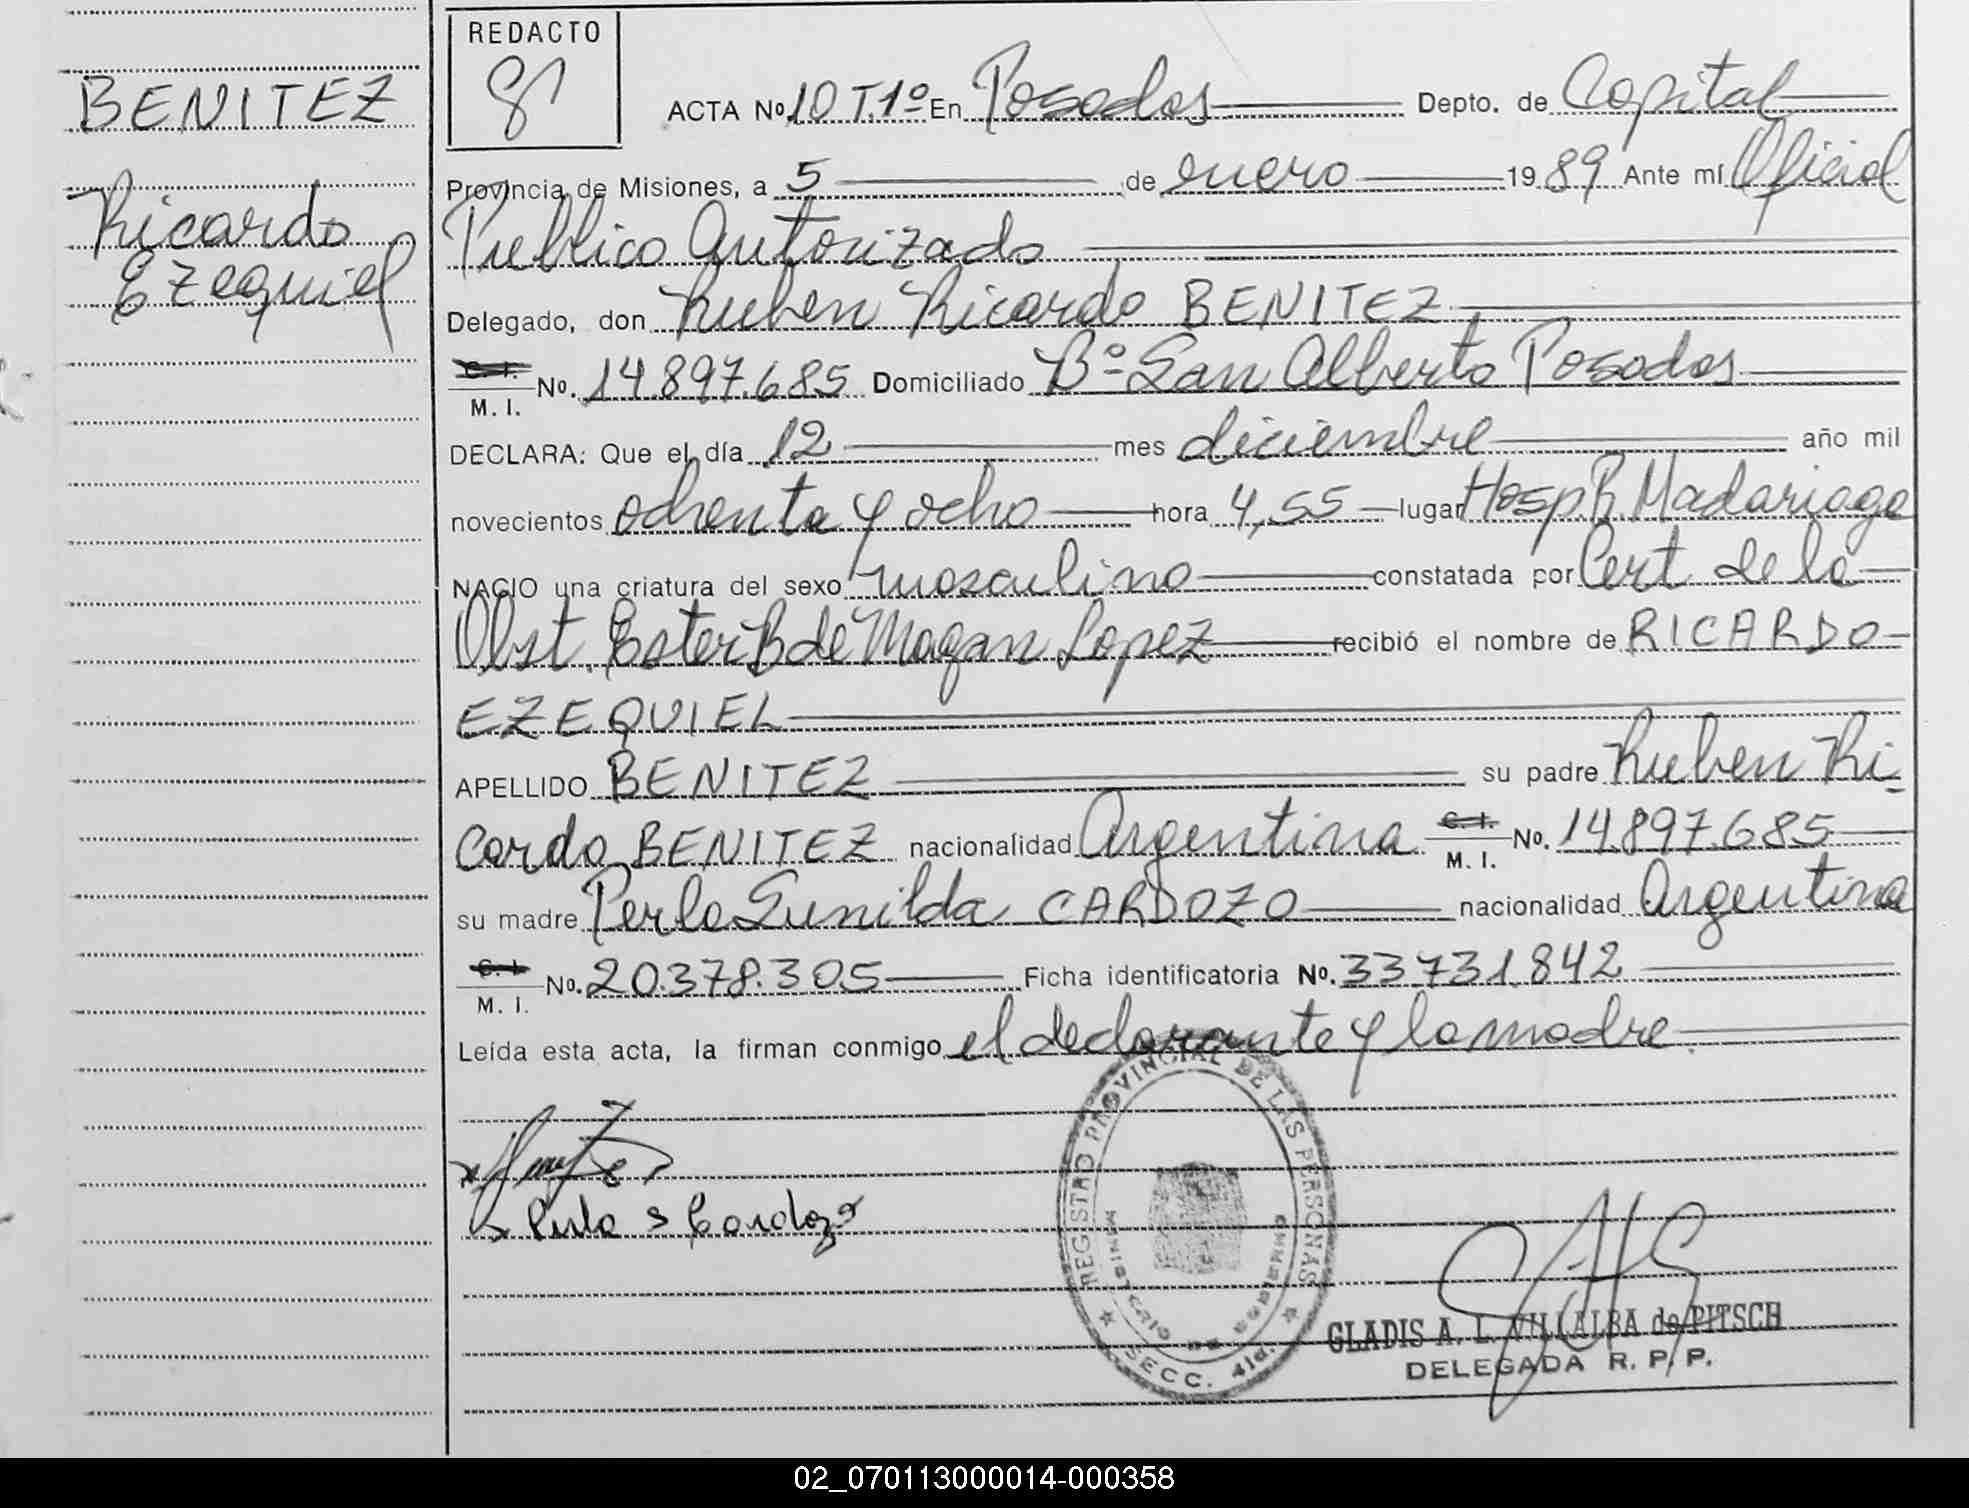 BENITEZ
Ricardo
Ezequiel
REDACTO
ACTA No. 10 T.1º En Posadas Depto. de Capital
Provincia de Misiones, a 5 de enero 1989 Ante mí Oficial
Publico Autorizado
Delegado, don Ruben Ricardo BENITEZ
C. I.
M. I. No. 14.897.685 Domiciliado Bº San Alberto Posadas
DECLARA: Que el día 12 mes diciembre año mil
novecientos ochenta y ocho hora 4,55 lugar Hosp. R. Madariaga
NACIO una criatura del sexo masculino constatada por Cert. de la
Obst. Ester B de Magan Lopez recibió el nombre de RICARDO
EZEQUIEL
APELLIDO BENITEZ su padre Ruben Ri-
cardo BENITEZ nacionalidad Argentina C. I. M. I. No. 14.897.685
su madre Perla Sunilda CARDOZO nacionalidad Argentina
C. I.
M. I. No. 20.378.305 Ficha identificatoria No. 33.731.842
Leída esta acta, la firman conmigo el declarante y la madre.
Perla S Cardozo
REGISTRO PROVINCIAL DE LAS PERSONAS
MINISTERIO DE GOBIERNO
SECC. 41a.
GLADIS A. L. VILLALBA de PITSCH
DELEGADA R. P. P.
02_070113000014-000358